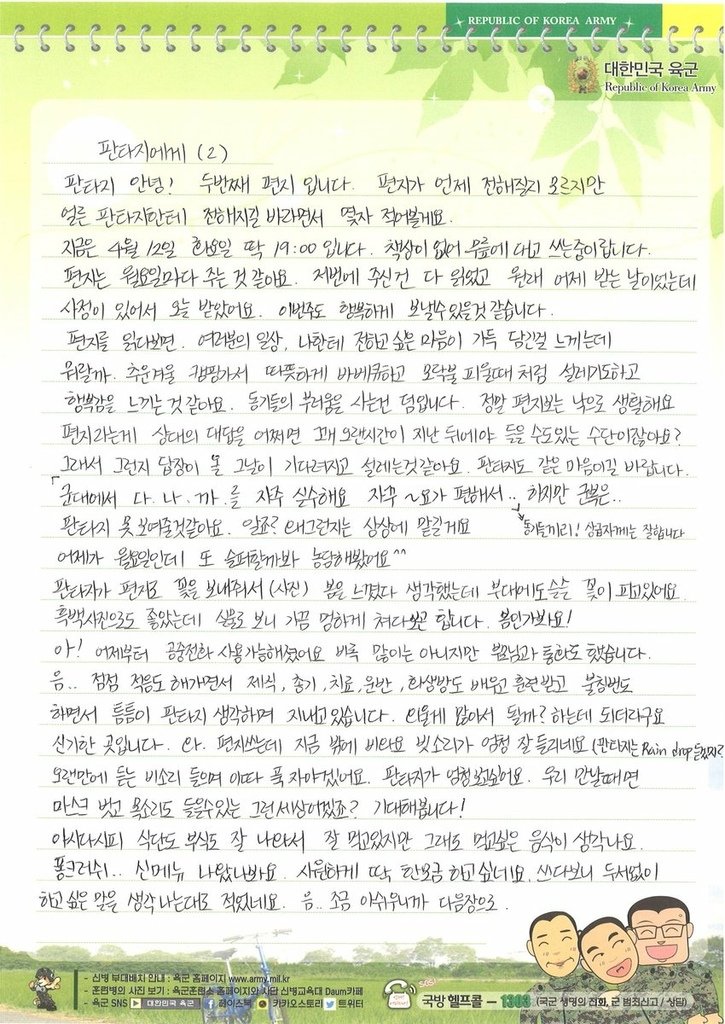 REPUBLIC OF KOREA ARMY
대한민국 육군
Republic of Korea Army
판타지에게 (2)
판타지 안녕! 두번째 편지 입니다. 편지가 언제 전해질지 모르지만
얼른 판타지한테 전해지길 바라면서 몇자 적어볼게요.
지금은 4월 12일 화요일 딱 19:00 입니다. 책상이 없어 무릎에 대고 쓰는중이랍니다.
편지는 월요일마다 주는 것 같아요. 저번에 주신건 다 읽었고 원래 어제 받는 날이었는데
사정이 있어서 오늘 받았어요. 이번주도 행복하게 보낼수있을것 같습니다.
편지를 읽다보면. 여러분의 일상, 나한테 전하고 싶은 마음이 가득 담긴걸 느끼는데
뭐랄까. 추운겨울 캠핑가서 따뜻하게 바베큐하고 모닥불 피울때 처럼 설레기도하고
행복감을 느끼는 것 같아요. 동기들의 부러움을 사는건 덤입니다. 정말 편지보는 낙으로 생활해요
편지라는게 상대의 대답을 어쩌면 꽤 오랜시간이 지난 뒤에야 들을 수도있는 수단이잖아요?
그래서 그런지 답장이 올 그날이 기다려지고 설레는것같아요. 판타지도 같은 마음이길 바랍니다.
「군대에서 다. 나. 까. 를 자주 실수해요 자꾸 ~요가 편해서.. 하지만 군복은..
판타지 못보여줄것같아요. 왜죠? 왜그런지는 상상에 맡길게요
동기들끼리! 상급자께는 잘합니다
어제가 월요일인데 또 슬퍼할까봐 농담해봤어요^^
판타지가 편지로 꽃을 보내줘서 (사진) 봄을 느꼈다 생각했는데 부대에도 슬슬 꽃이 피고있어요.
흑백사진으로도 좋았는데 실물로 보니 가끔 멍하게 쳐다보곤 합니다. 봄인가봐요!
아! 어제부터 공중전화 사용가능해졌어요 비록 많이는 아니지만 부모님과 통화도 했습니다.
음.. 점점 적응도 해가면서 제식, 총기, 치료, 운반, 화생방도 배우고 훈련받고 불침번도
하면서 틈틈이 판타지 생각하며 지내고있습니다. 외울게 많아서 될까? 하는데 되더라구요
신기한 곳입니다. 아. 편지쓰는데 지금 밖에 비와요 빗소리가 엄청 잘 들리네요 (판타지는 Rain drop 듣겠지?
오랜만에 듣는 비소리 들으며 이따 푹 자야겠어요. 판타지가 엄청보고싶어요. 우리 만날때면
마스크 벗고 목소리도 들을수있는 그런세상이겠죠? 기대해봅니다!
아시다시피 식단도 부식도 잘 나와서 잘 먹고있지만 그래도 먹고싶은 음식이 생각나요.
퐁크러쉬.. 신메뉴 나왔나봐요. 시원하게 딱, 한모금 하고싶네요. 쓰다보니 두서없이
하고 싶은 말을 생각나는대로 적었네요. 음.. 조금 아쉬우니까 다음장으로.
- 신병 부대배치 안내 : 육군 홈페이지 www.army.mil.kr
- 훈련병의 사진 보기 : 육군훈련소 홈페이지와 사단 신병교육대 Daum카페
- 육군 SNS 대한민국 육군 페이스북 카카오스토리 트위터
국방 헬프콜 - 1303 (국군 생명의 전화, 군 범죄신고 / 상담)